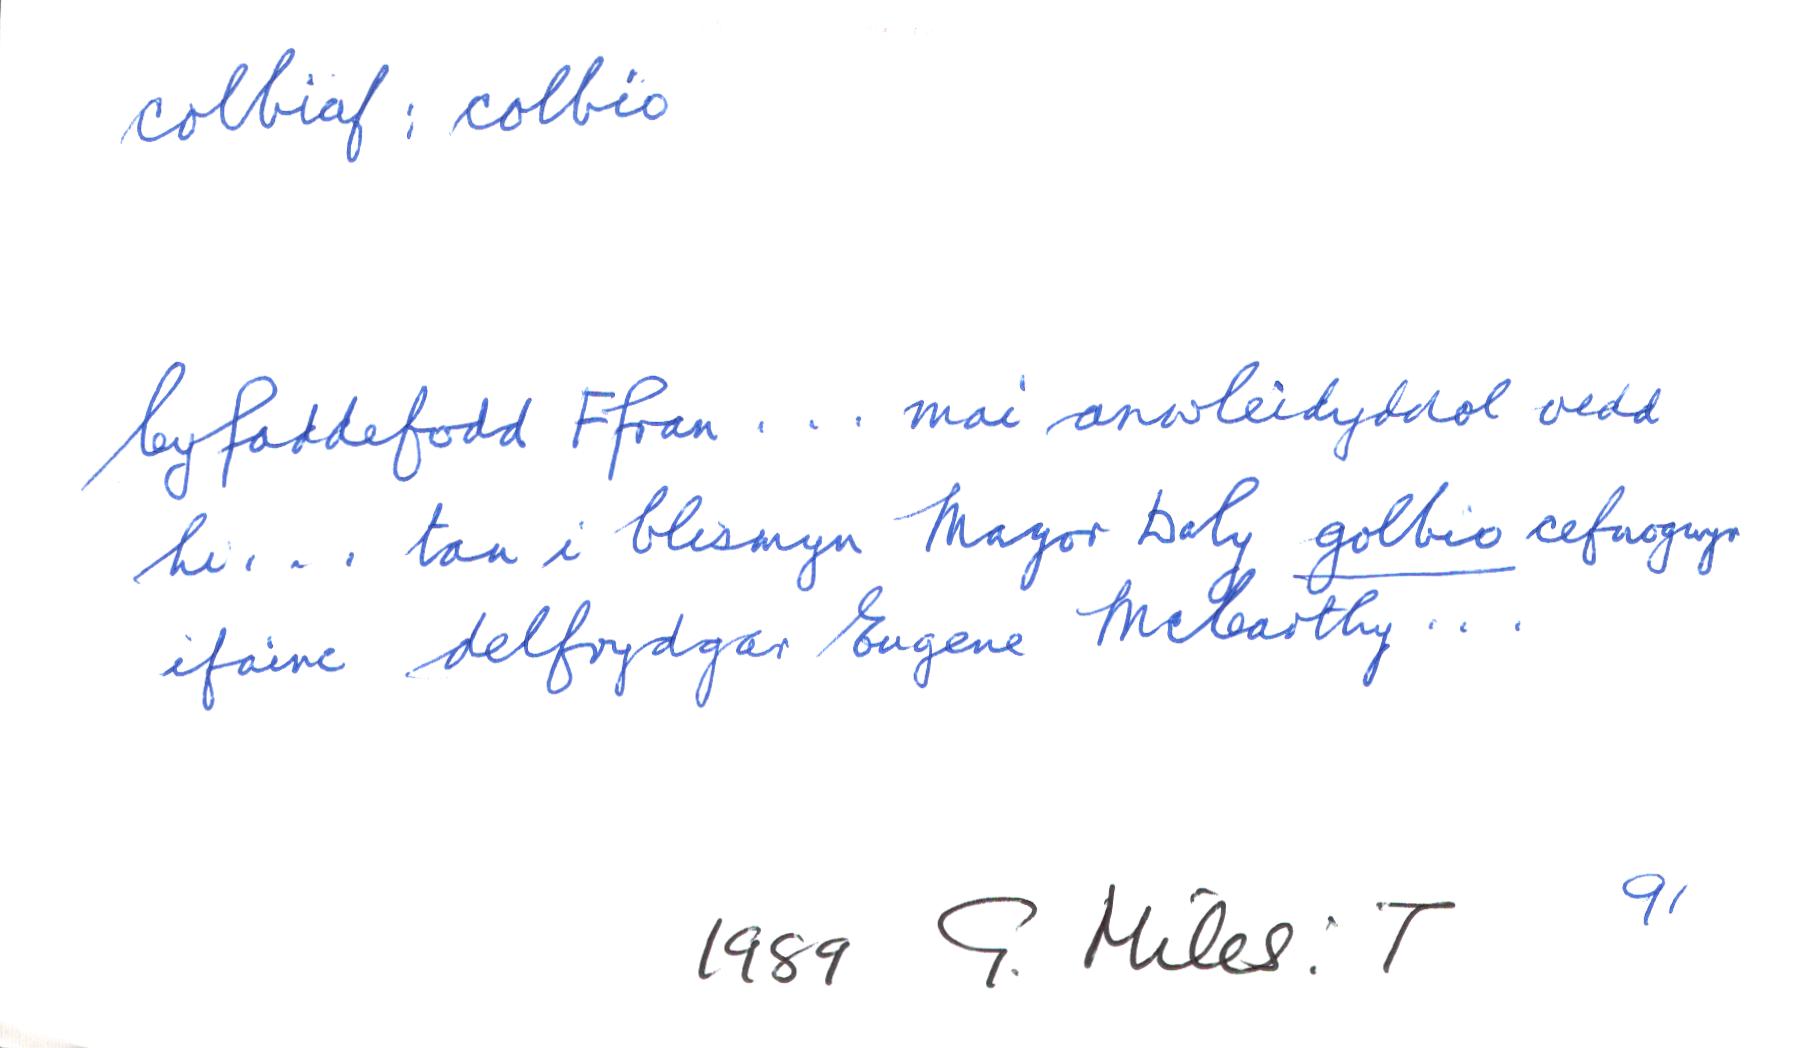 colbiaf : colbio
Cyfaddefodd Ffran . . . mai anwleidyddol oedd
hi . . . tan i blismyn Mayor Daly golbio cefnogwyr
ifainc delfrydgar Eugene McCarthy . . .
1989 G. Miles : T 91